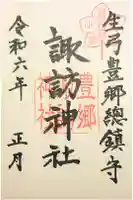 生弓豊郷總鎮守
諏訪神社
豊郷
神社
令和六年
正月